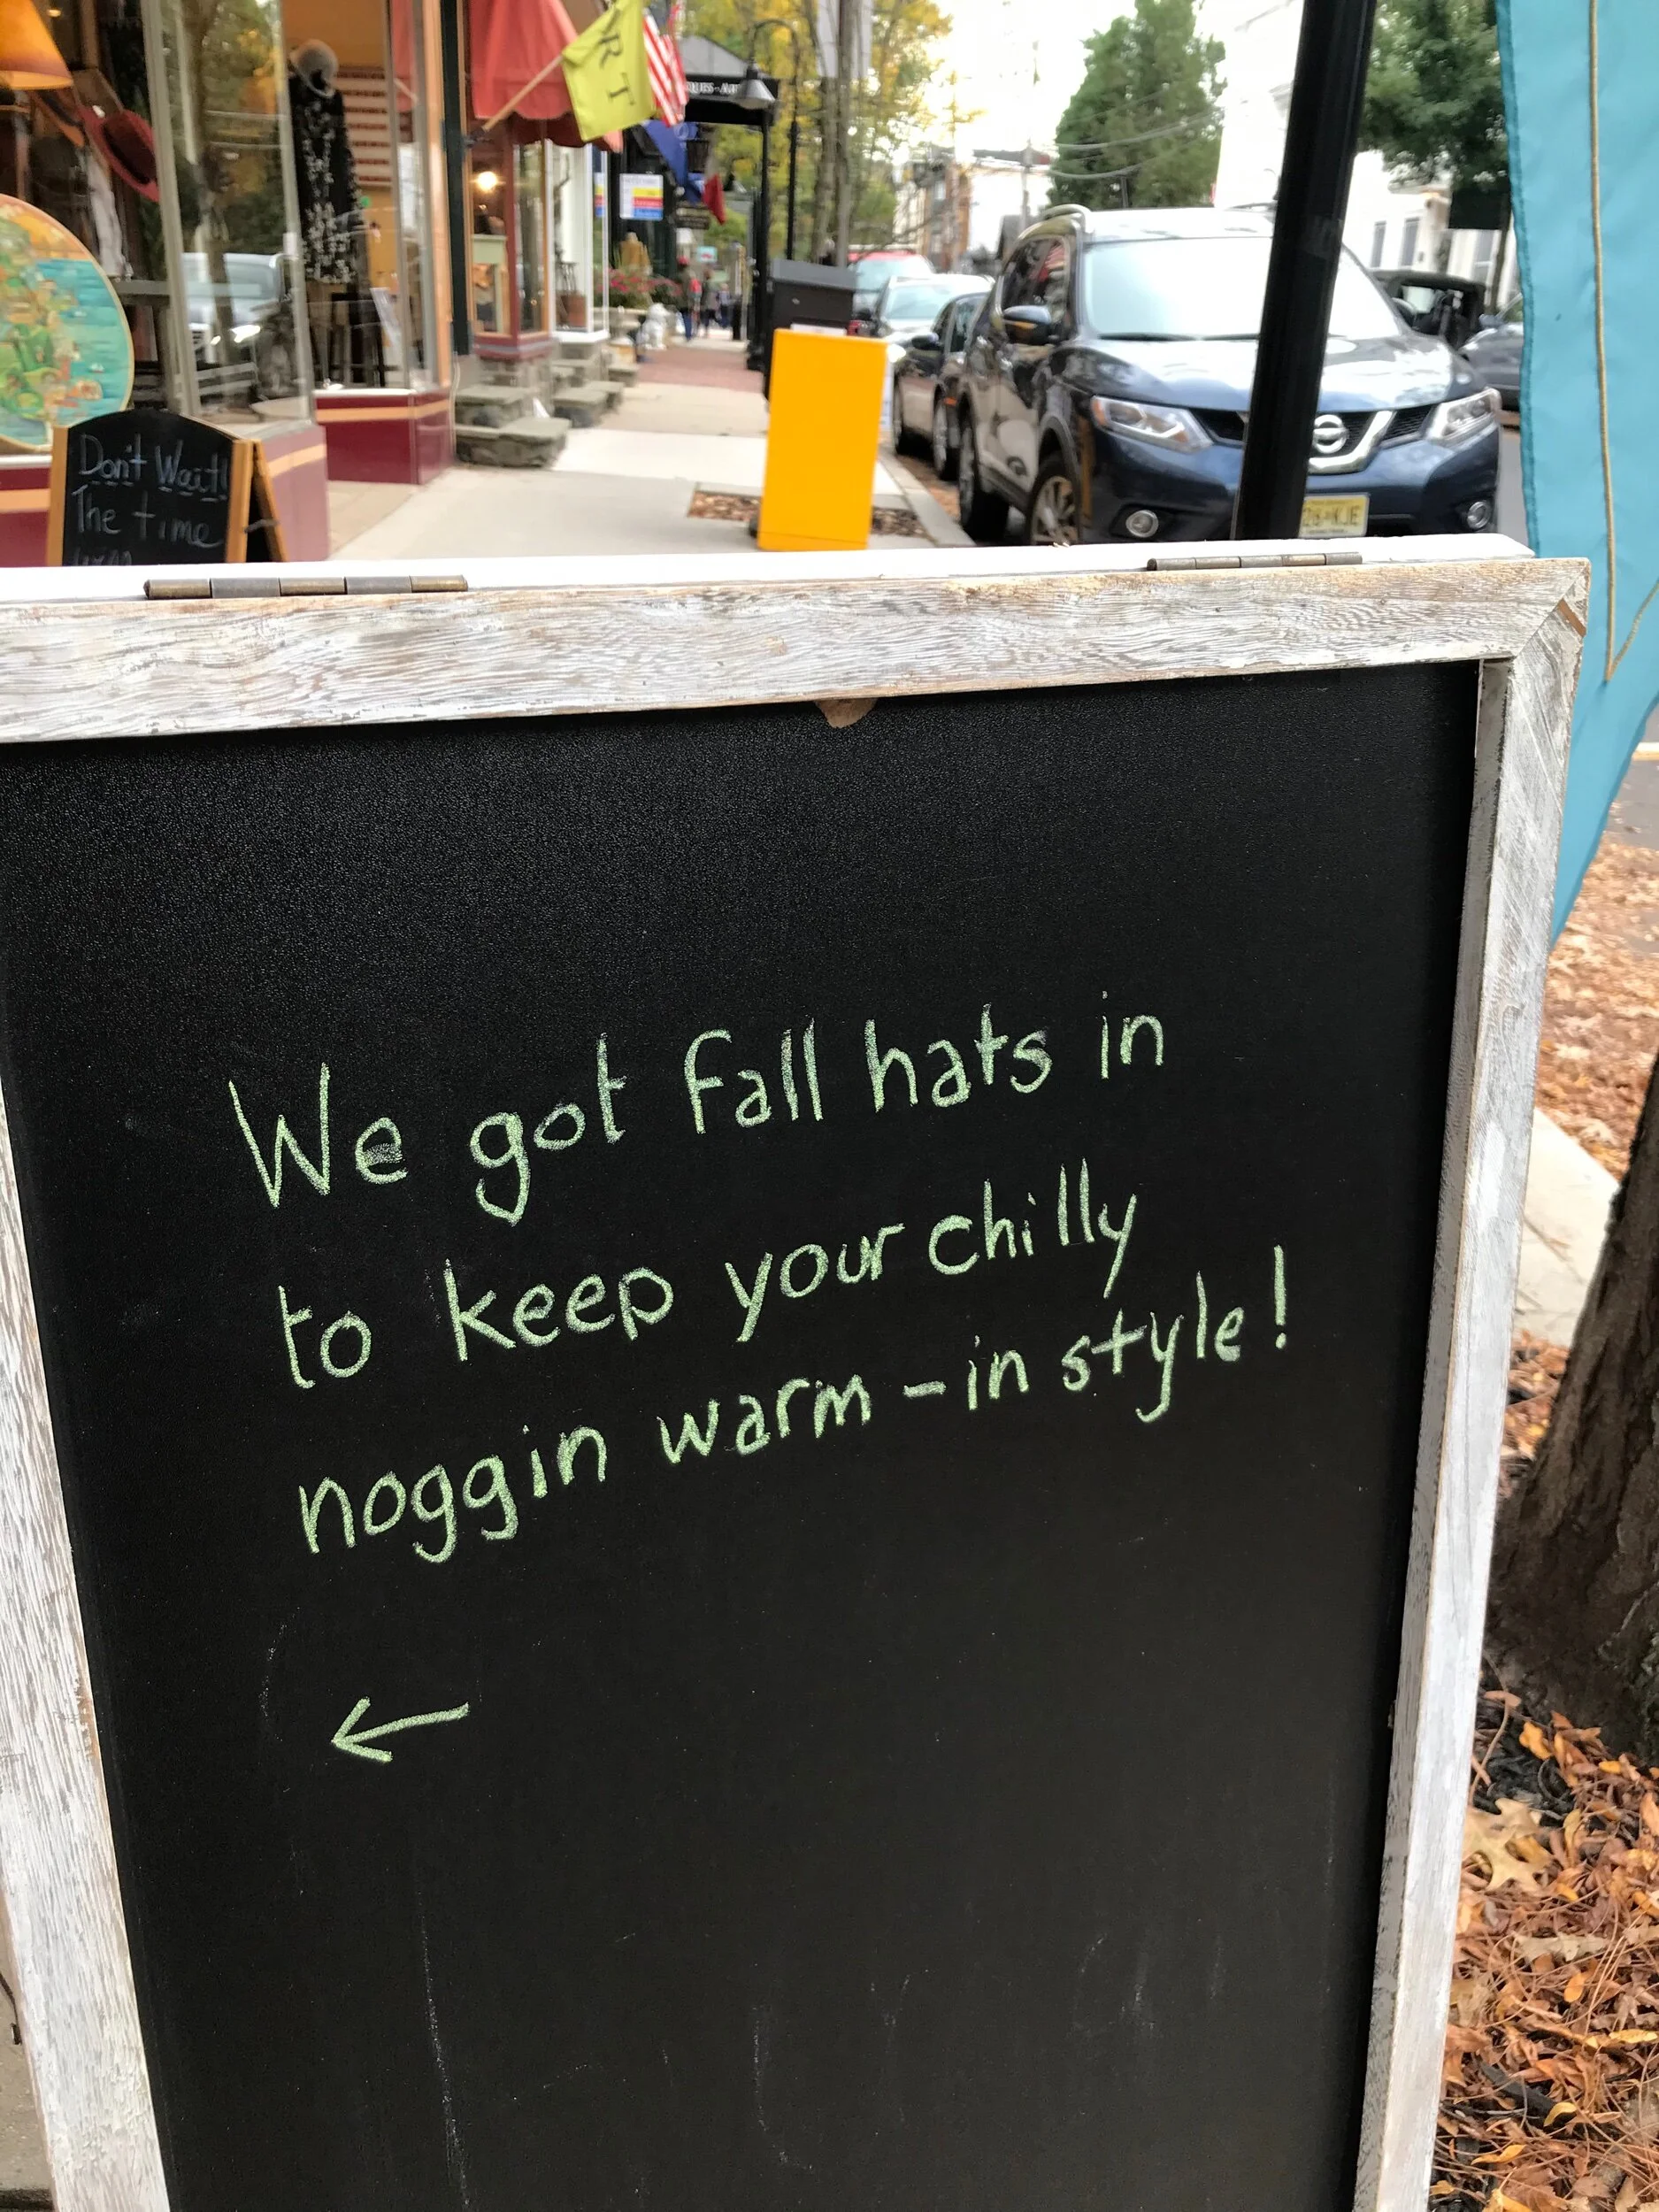 ART
QUES-
Don't Wait!
The time
We got fall hats in
to keep your chilly
noggin warm - in style!
←